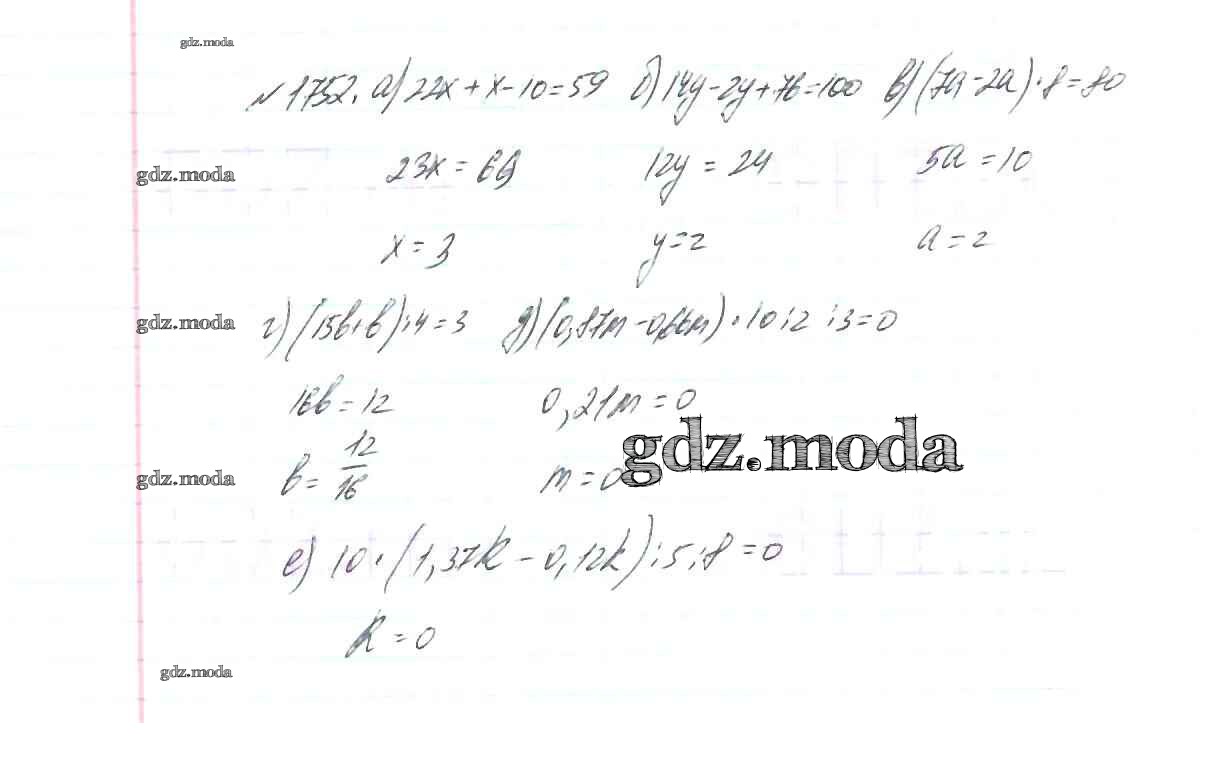 gdz.moda
№1752. а) 22x + x - 10 = 59 б) 14y - 2y + 76 = 100 в) (7a - 2a) · 8 = 80
gdz.moda 23x = 69 12y = 24 5a = 10
x = 3 y = 2 a = 2
gdz.moda г) (15b + b) : 4 = 3 д) (0,87m - 0,66m) · 10 : 2 : 3 = 0
16b = 12 0,21m = 0
gdz.moda
gdz.moda b = 12/16 m = 0
е) 10 · (1,37k - 0,12k) : 5 : 8 = 0
k = 0
gdz.moda